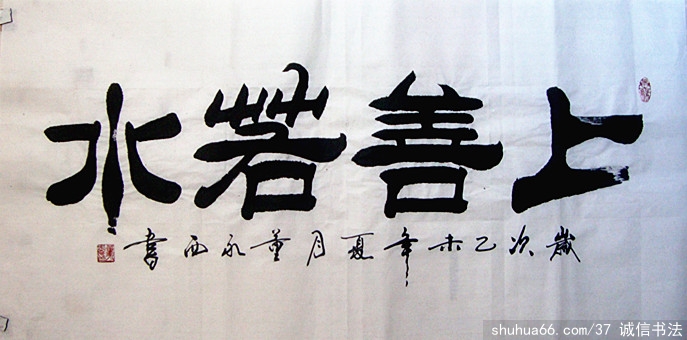 上善若水
歲次乙未年夏月董永西書
shuhua66.com/37 诚信书法